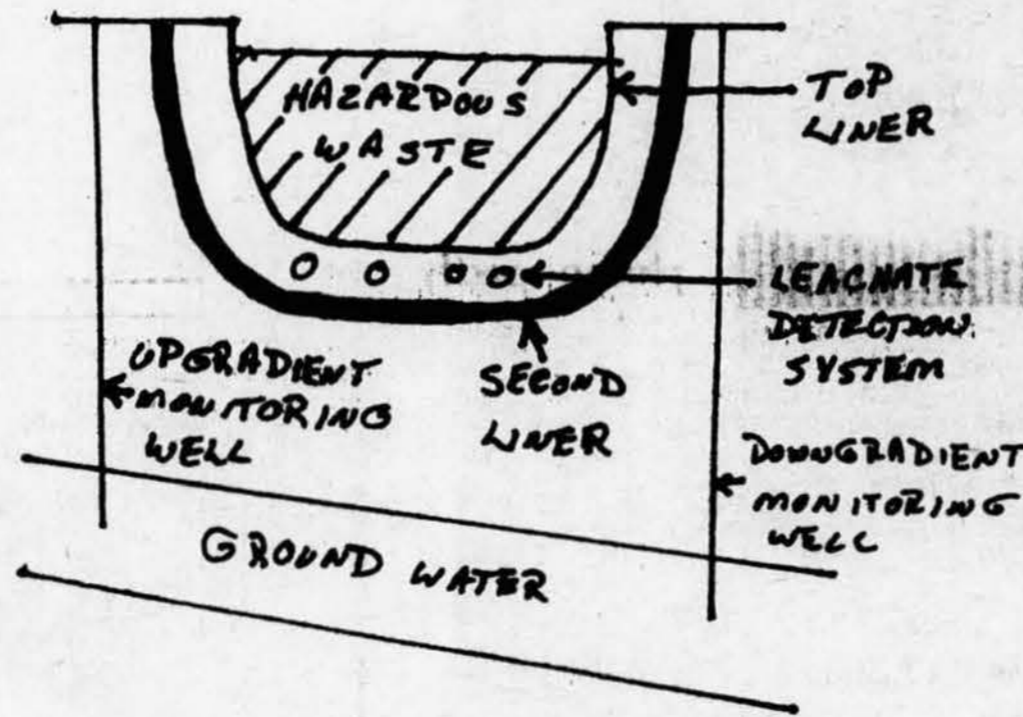 HAZARDOUS
WASTE
TOP
LINER
LEACHATE
DETECTION
SYSTEM
UPGRADIENT
MONITORING
WELL
SECOND
LINER
DOWNGRADIENT
MONITORING
WELL
GROUND WATER